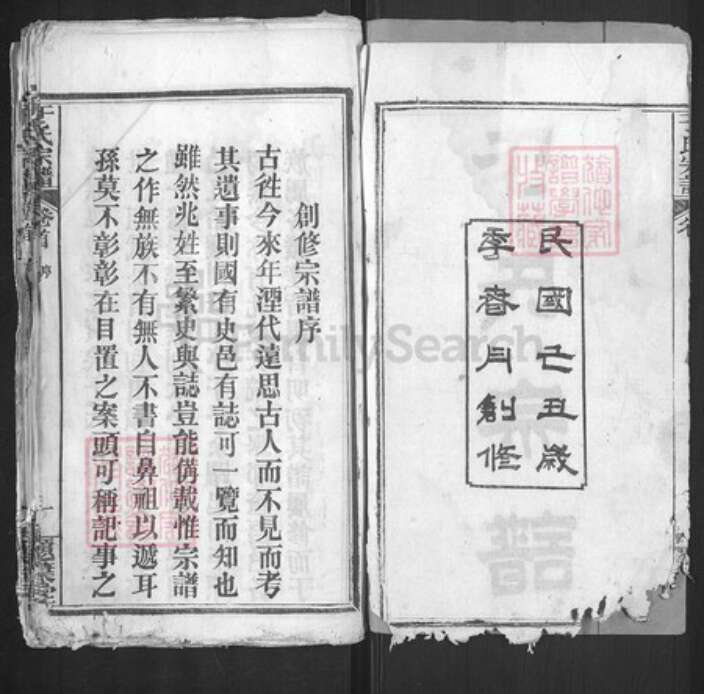 民國乙丑歲
季春月創修
創修宗譜序
古徃今來年湮代遠思古人而不見而考
其遺事則國有史邑有誌可一覽而知也
雖然兆姓至繁史與誌豈能備載惟宗譜
之作無族不有無人不書自鼻祖以遞耳
孫莫不彰彰在目置之案頭可稱記事之
氏宗譜
卷首
序
FamilySearch